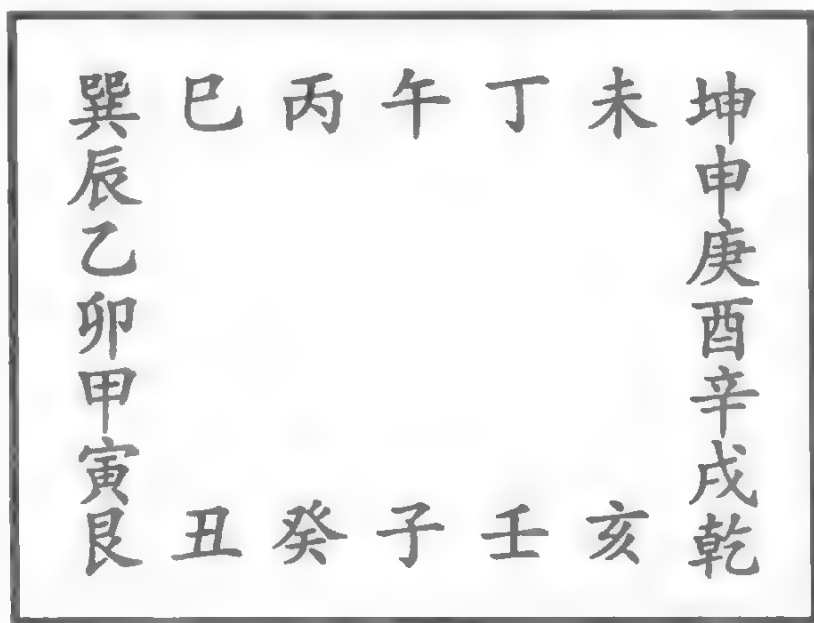 巽巳丙午丁未坤
辰申
乙庚
卯酉
甲辛
寅戌
艮丑癸子壬亥乾